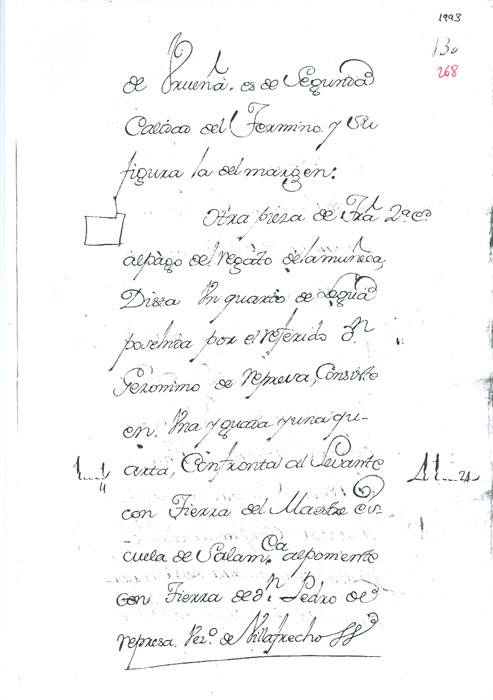 1993
130
268
de Truena. es de Segunda
Calidad del Termino y su
figura la del margen:
Otra pieza de Trª 2ª cª
al pago del regato de la muñeca,
Dista Un quarto de Legua
posehida por el referido Dn
Geronimo de represa, Consiste
en. Una yguada y una qu-
1...1/4
arta, Confronta al Levante
con Tierra del Maestre Es
cuela de Salam.ca al poniente
con Tierra de dn. Pedro de
represa. Vezº. de Villafrecho